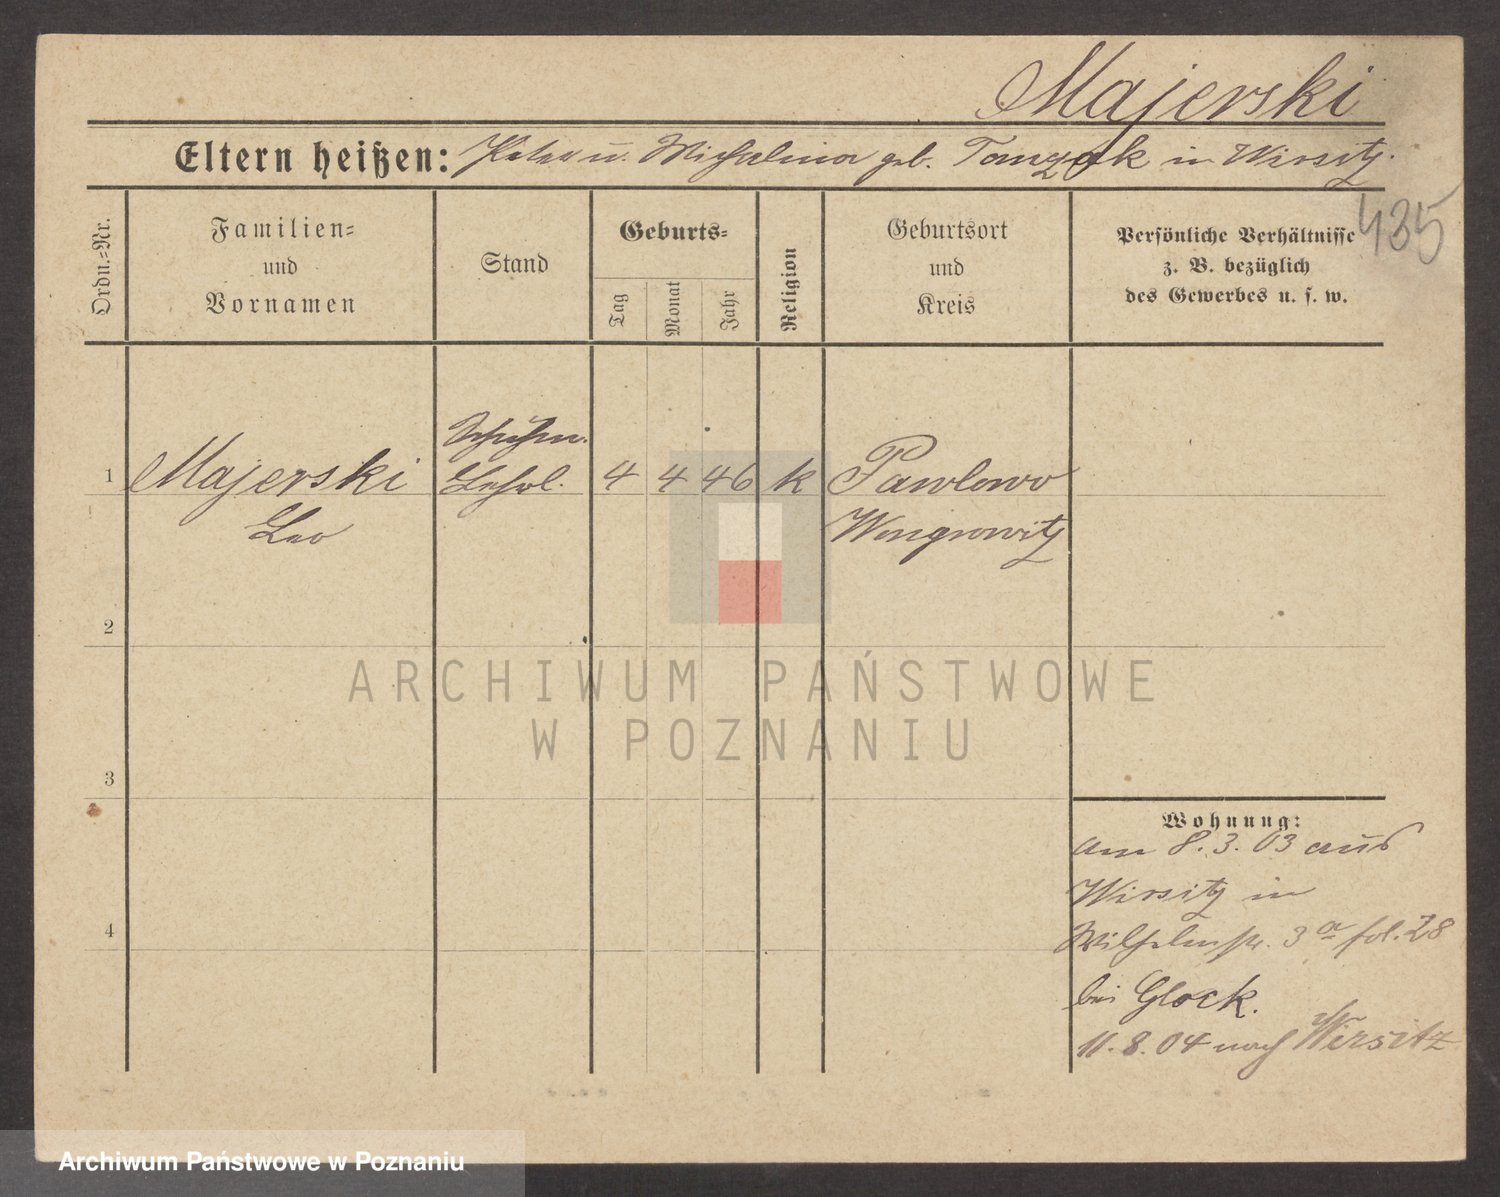 Majerski
Eltern heißen: Peter u. Michalina geb. Tomzak in Wirsitz.
435
Ordn.=Nr.
Familien=
und
Vornamen
Stand
Geburts=
Tag
Monat
Jahr
Religion
Geburtsort
und
Kreis
Persönliche Verhältnisse
z. B. bezüglich
des Gewerbes u. s. w.
Schuhm.
1 Majerski Lehrl. 4 4 46 k Pawlowo
Leo Wongrowitz
2
ARCHIWUM PAŃSTWOWE
W POZNANIU
3
Wohnung:
am 8. 3. 03 aus
Wirsitz in
4 Wilhelmstr. 3a fol. 28
bei Glock.
11. 8. 04 nach Wirsitz
Archiwum Państwowe w Poznaniu